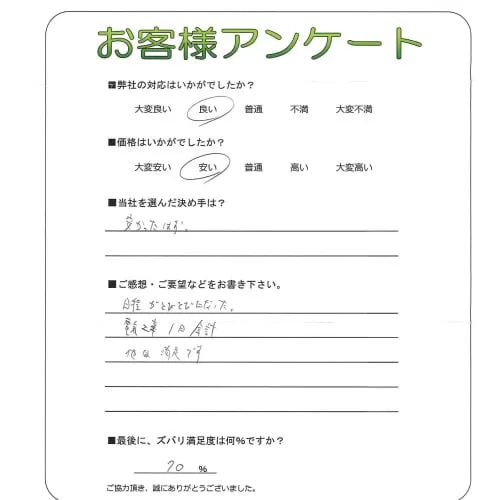 お客様アンケート
■弊社の対応はいかがでしたか？
大変良い 良い 普通 不満 大変不満
■価格はいかがでしたか？
大変安い 安い 普通 高い 大変高い
■当社を選んだ決め手は？
安かったから。
■ご感想・ご要望などをお書き下さい。
日程がとびとびになった。
工事 1日 会計
他は 満足です
■最後に、ズバリ満足度は何%ですか？
70 %
ご協力頂き、誠にありがとうございました。